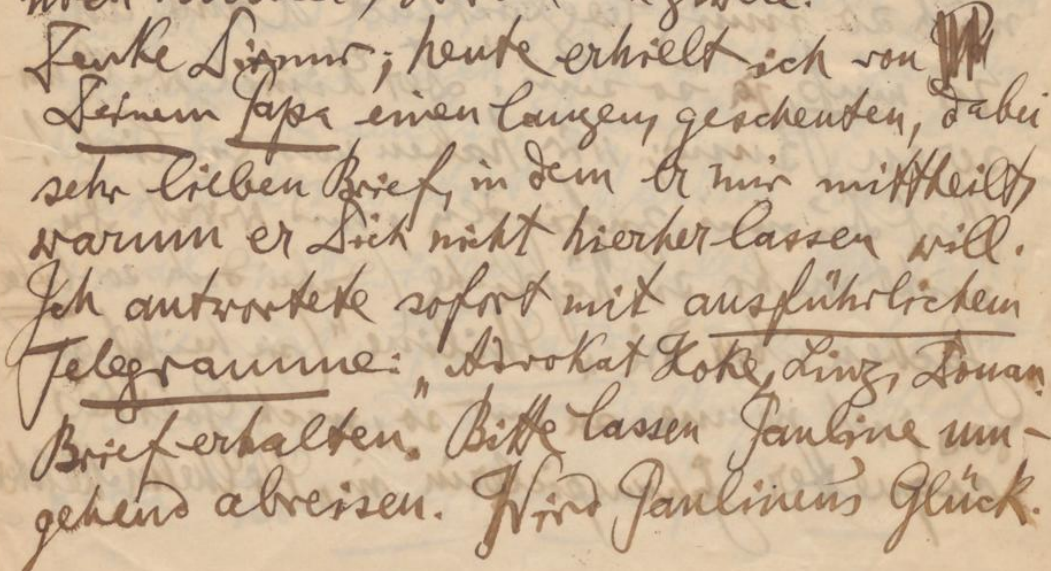 Denke Dir nur; heute erhielt ich von
Deinem Papa einen langen, gescheuten, dabei
sehr lieben Brief, in dem Er mir mittheilt,
warum er Dich nicht hierher lassen will.
Ich antwortete sofort mit ausführlichem
Telegramme: „Advokat Hoke, Linz, Donau.
Brief erhalten. Bitte lassen Pauline um-
gehend abreisen. Wird Paulinens Glück.